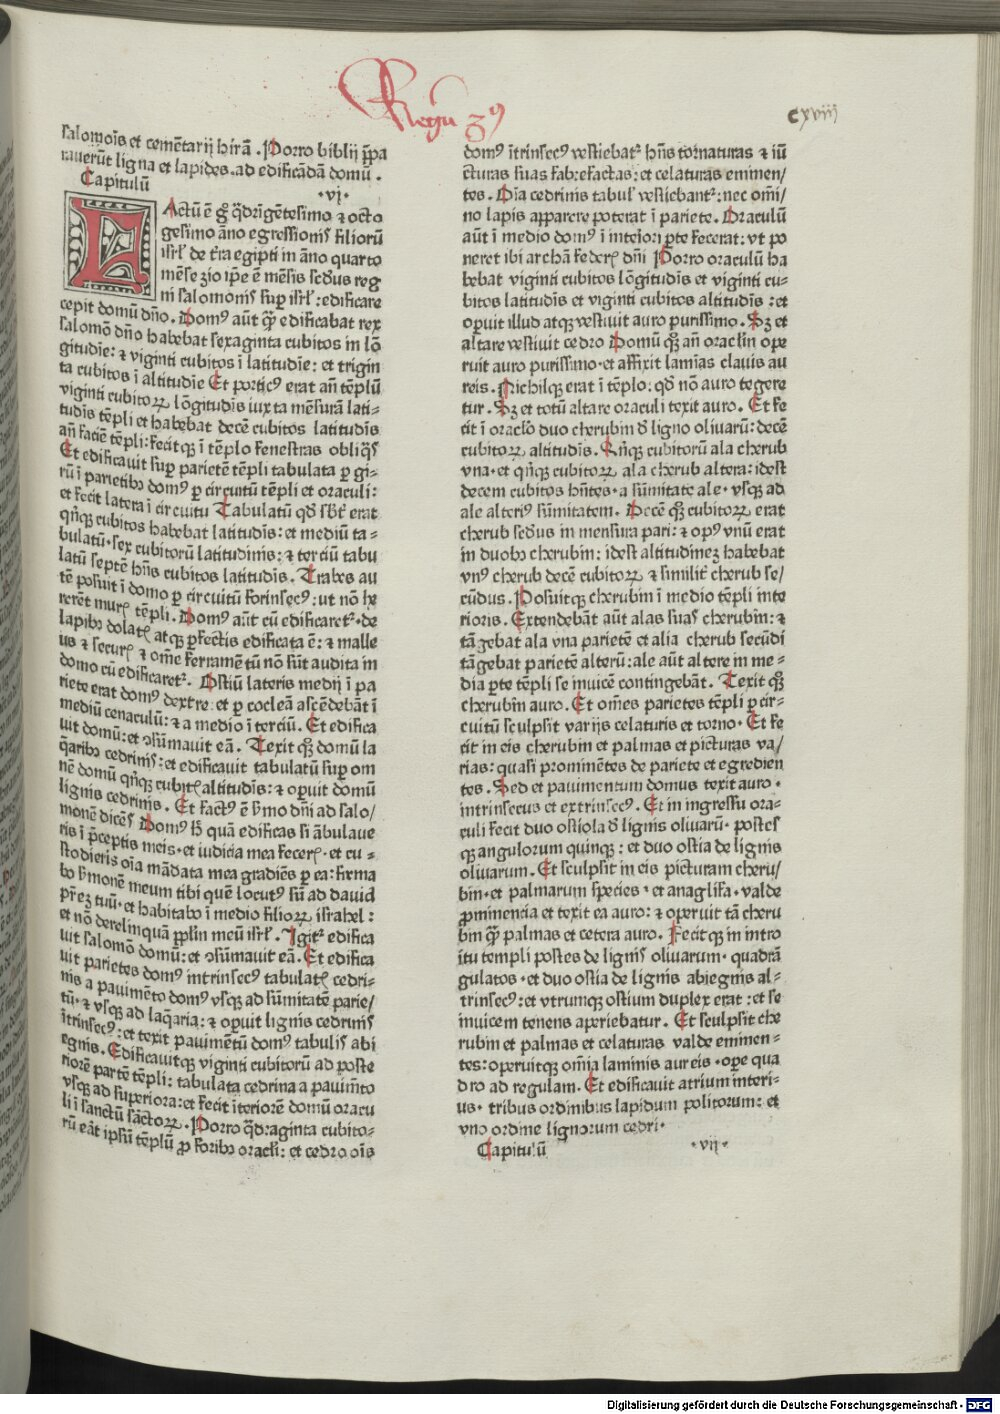 Regū 3ꝰ
cxviij
salomōis et cemētarij hirā. Porro biblij p̄pa
rauerūt ligna et lapides. ad edificādā domū.
Capitulū
·vj·
FActū ē gͦ q̄drīgētesimo ⁊ octo
gesimo āno egressionis filiorū
isrl̄ de t̄ra egipti in āno quarto
mēse zio ip̄e ē mēsis secūdus reg
ni salomonis suꝑ isrl̄: edificare
cepit domū dn̄o. Domꝰ aūt quā edificabat rex
salomō dn̄o habebat sexaginta cubitos in lō
gitudīe: ⁊ viginti cubitos ī latitudīe: et trigin
ta cubitos ī altitudīe Et porticꝰ erat an̄ tēplū
viginti cubitoꝝ lōgitudīs iuxta mēsurā lati-
tudīs tēpli et habebat decē cubitos latitudīs
an̄ faciē tēpli: fecitqꝫ ī tēplo fenestras obliq̄s
Et edificauit suꝑ parietē tēpli tabulata ꝑ gi-
rū ī parietibꝰ domꝰ ꝑ circuitū tēpli et oraculi:
et fecit latera ī circuitu Tabulatū qd̄ sbt̄ erat
qn̄qꝫ cubitos habebat latitudīs: et mediū ta-
bulatū. sex cubitorū latitudinis: ⁊ terciū tabu
latū septē hn̄s cubitos latitudīs. Trabes au
tē posuit ī domo ꝑ circuitū forinsecꝰ: ut nō he
rerēt murꝭ tēpli. Domꝰ aūt cū edificaretᷣ. de
lapibꝰ dolatꝭ atqꝫ ꝑfectis edificata ē: ⁊ malle
us ⁊ securꝭ ⁊ om̄e ferramētū nō sūt audita in
domo cū edificaretᷣ. Ostiū lateris medij ī pa
riete erat domꝰ dextre: et ꝑ cocleā ascēdebāt ī
mediū cenaculū: ⁊ a medio ī terciū. Et edifica
uit domū: et ꝯsūmauit eā. Texit qꝫ domū la
q̄aribꝰ cedrinis: et edificauit tabulatū suꝑ om
nē domū qn̄qꝫ cubitꝭ altitudīs: ⁊ oꝑuit domū
lignis cedrinis. Et factꝰ ē ẜmo dn̄i ad salo/
monē dicēs Domꝰ h̄ quā edificas si ābulaue
ris ī p̄ceptis meis. et iudicia mea fecerꝭ. et cu-
stodieris oīa mādata mea gradiēs ꝑ ea: firma
bo ẜmonē meum tibi quē locutꝰ sū ad dauid
pr̄eꝫ tuū. et habitabo ī medio filioꝝ israhel:
et nō derelinquā ppl̄m meū isrl̄. Igitᷣ edifica
uit salomō domū: et ꝯsūmauit eā. Et edifica
uit parietes domꝰ intrinsecꝰ tabulatꝭ cedri-
nis a pauimēto domꝰ vsqꝫ ad sūmitatē parie/
tū. ⁊ vsqꝫ ad laq̄aria: ⁊ oꝑuit lignis cedrinis
ītrinsecꝰ: et texit pauimētū domꝰ tabulis abi
egnis. Edificauitqꝫ viginti cubitorū ad poste
riorē partē tēpli: tabulata cedrina a pauimēto
vsqꝫ ad superiora: et fecit īteriorē domū oracu
li ī sanctū sāctoꝝ. Porro q̄draginta cubito-
rū erāt ipsū tēplū ꝓ foribꝰ oracli: et cedro oīs
domꝰ ītrinsecꝰ vestiebatᷣ hn̄s tornaturas ⁊ iū
cturas suas fabrefactas: et celaturas eminen-
tes. Oīa cedrinis tabul̄ vestiebantᷣ: nec om̄i-
no lapis apparere poterat ī pariete. Oraculū
aūt ī medio domꝰ ī interiori ꝑte fecerat: vt po
neret ibi archā federꝭ dn̄i Porro oraculū ha
bebat viginti cubitos lōgitudīs et viginti cu-
bitos latitudīs et viginti cubitos altitudīs: et
oꝑuit illud atqꝫ vestiuit auro purissimo. Sꝫ et
altare vestiuit cedro Domū qꝫ an̄ oracl̄m ope
ruit auro purissimo. et affixit lamīas clauis au
reis. Nichilqꝫ erat ī tēplo: qd̄ nō auro tegere
tur. Sꝫ et totū altare oraculi texit auro. Et fe
cit ī oraclo duo cherubin d̄ ligno oliuarū: decē
cubitoꝝ altitudīs. Qn̄qꝫ cubitorū ala cherub
vna. et qn̄qꝫ cubitoꝝ ala cherub altera: idest
decem cubitos hn̄tes. a sūmitate ale. vsqꝫ ad
ale alteriꝰ sūmitatem. Decē qꝫ cubitoꝝ erat
cherub secūdus in mensura pari: ⁊ opꝰ vnū erat
in duobꝰ cherubin: idest altitudineꝫ habebat
vnꝰ cherub decē cubitoꝝ ⁊ similit̄ cherub se/
cūdus. Posuitqꝫ cherubin ī medio tēpli inte
rioris. Extendebāt aūt alas suas cherubin: ⁊
tāgebat ala vna parietē et alia cherub secūdi
tāgebat parietē alterū: ale aūt altere in me-
dia ꝑte tēpli se inuicē contingebāt. Texit qꝫ
cherubin auro. Et om̄es parietes tēpli ꝑ cir-
cuitū sculpsit varijs celaturis et torno. Et fe
cit in eis cherubin et palmas et picturas va/
rias: quasi prominētes de pariete et egredien
tes. Sed et pauimentum domus texit auro.
intrinsecus et extrinsecꝰ. Et in ingressu ora-
culi fecit duo ostiola d̄ lignis oliuarū. postes
qꝫ angulorum quinqꝫ: et duo ostia de lignis
oliuarum. Et sculpsit in eis picturam cheru/
bin. et palmarum species. et anaglifa. valde
ꝓminencia et texit ea auro: ⁊ operuit tā cheru
bin qᷓ palmas et cetera auro. Fecitqꝫ in intro
itu templi postes de lignis oliuarum. quadrā
gulatos. et duo ostia de lignis abiegnis al-
trinsecꝰ: et vtrumqꝫ ostium duplex erat: et se
inuicem tenens aperiebatur. Et sculpsit che
rubin et palmas et celaturas valde eminen-
tes: operuitqꝫ om̄ia laminis aureis. ope qua
dro ad regulam. Et edificauit atrium interi-
us. tribus ordinibus lapidum politorum: et
vno ordine lignorum cedri.
Capitulū
·vij·
Digitalisierung gefördert durch die Deutsche Forschungsgemeinschaft - DFG